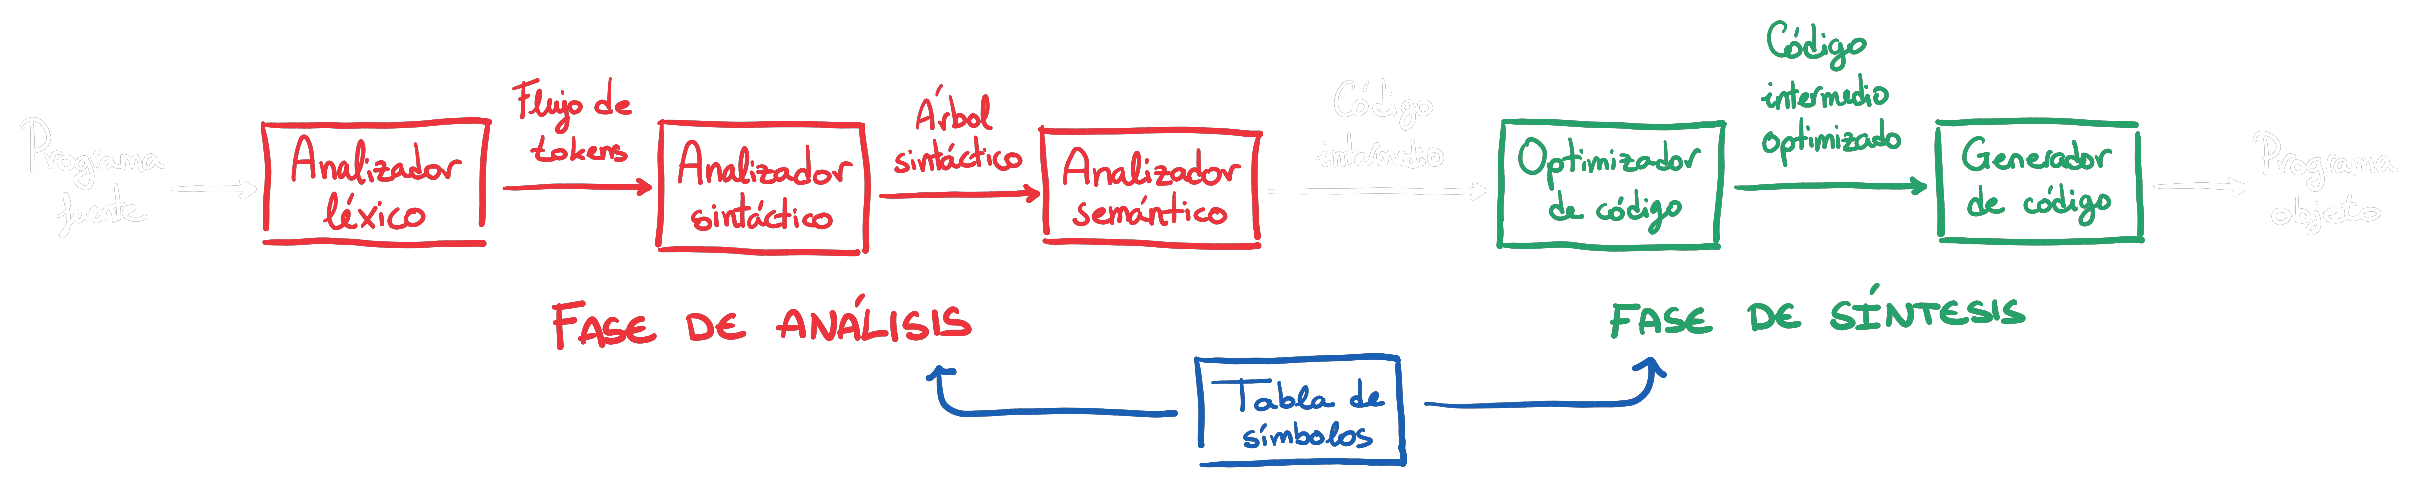 Programa
fuente
Analizador
léxico
Flujo de
tokens
Analizador
sintáctico
Árbol
sintáctico
Analizador
semántico
Código
Optimizador
de código
Código
intermedio
optimizado
Generador
de código
Programa
objeto
FASE DE ANÁLISIS
FASE DE SÍNTESIS
Tabla de
símbolos